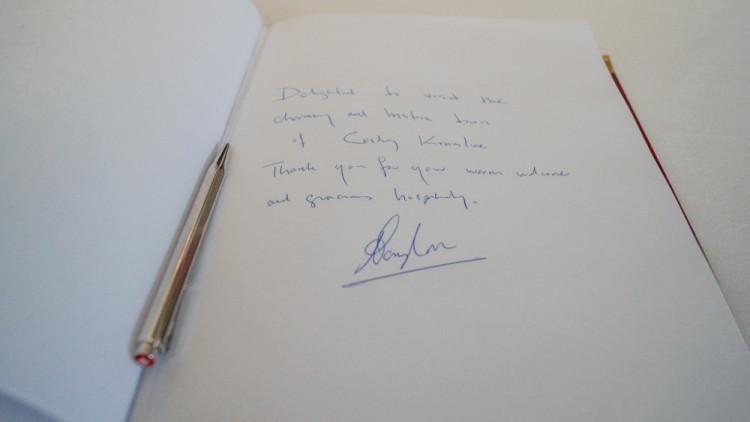 Delighted to visit the
charming and historic town
of Český Krumlov.
Thank you for your warm welcome
and gracious hospitality.